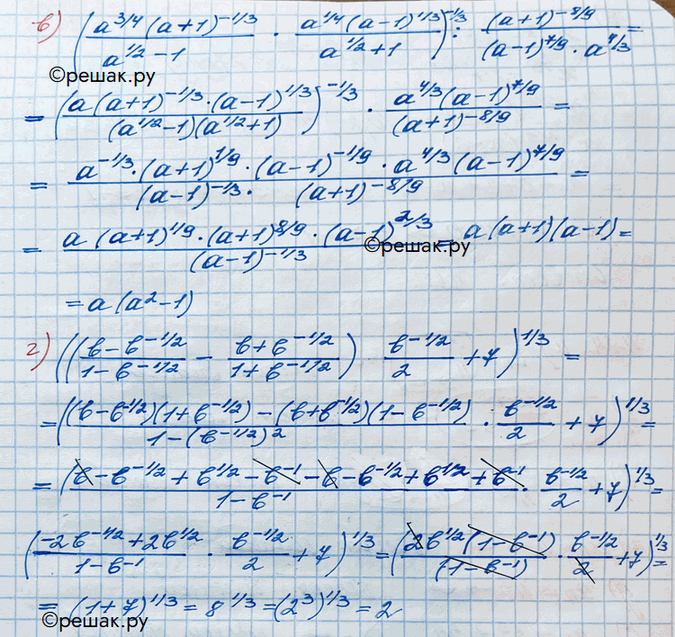 в) ((a^{3/4}(a+1)^{-1/3})/(a^{1/2}-1) · (a^{1/4}(a-1)^{1/3})/(a^{1/2}+1))^{-1/3} : ((a+1)^{-8/9})/((a-1)^{7/9} · a^{4/3}) =
©решак.ру
= ((a(a+1)^{-1/3} · (a-1)^{1/3})/((a^{1/2}-1)(a^{1/2}+1)))^{-1/3} · (a^{4/3}(a-1)^{7/9})/((a+1)^{-8/9}) =
= (a^{-1/3} · (a+1)^{1/9} · (a-1)^{-1/9} · a^{4/3}(a-1)^{7/9})/((a-1)^{-1/3} · (a+1)^{-8/9}) =
= (a(a+1)^{1/9} · (a+1)^{8/9} · (a-1)^{2/3})/((a-1)^{-1/3}) = a(a+1)(a-1) =
©решак.ру
= a(a²-1)
г) (((b-b^{-1/2})/(1-b^{-1/2}) - (b+b^{-1/2})/(1+b^{-1/2})) b^{-1/2}/2 + 7)^{1/3} =
= (((b-b^{-1/2})(1+b^{-1/2})-(b+b^{-1/2})(1-b^{-1/2}))/(1-(b^{-1/2})²) · b^{-1/2}/2 + 7)^{1/3} =
= ((b-b^{-1/2}+b^{1/2}-b^{-1}-b-b^{-1/2}+b^{1/2}+b^{-1})/(1-b^{-1}) · b^{-1/2}/2 + 7)^{1/3} =
((-2b^{-1/2}+2b^{1/2})/(1-b^{-1}) · b^{-1/2}/2 + 7)^{1/3} = ((2b^{1/2}(1-b^{-1}))/((1-b^{-1})) · b^{-1/2}/2 + 7)^{1/3} =
= (1+7)^{1/3} = 8^{1/3} = (2³)^{1/3} = 2
©решак.ру